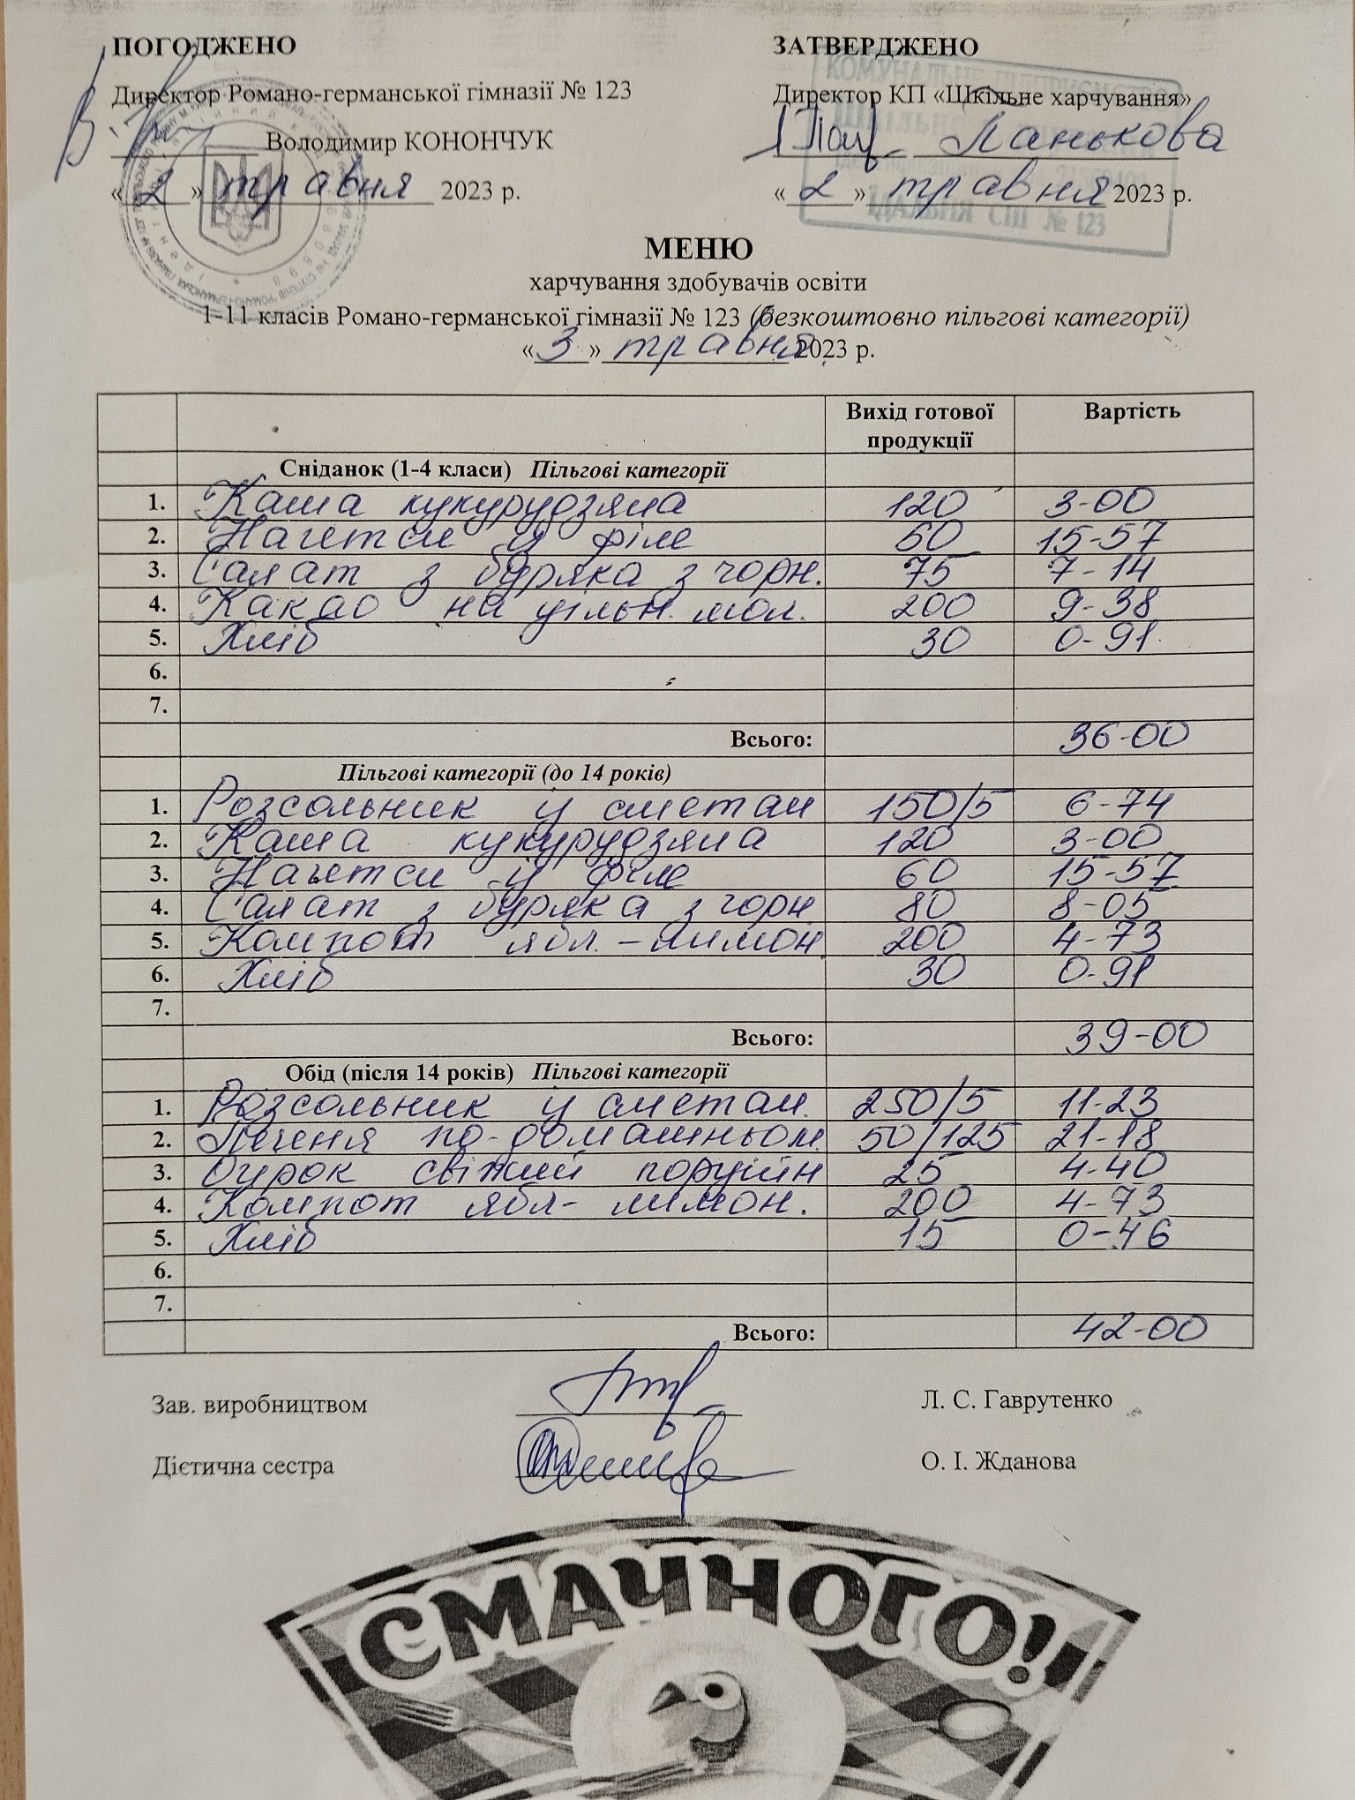 ПОГОДЖЕНО
Директор Романо-германської гімназії № 123
Володимир КОНОНЧУК
«2» травня 2023 р.
ЗАТВЕРДЖЕНО
Директор КП «Шкільне харчування»
Панькова
«2» травня 2023 р.
ЇДАЛЬНЯ СШ № 123
МЕНЮ
харчування здобувачів освіти
1-11 класів Романо-германської гімназії № 123 (безкоштовно пільгові категорії)
«3» травня 2023 р.
Вихід готової продукції Вартість
Сніданок (1-4 класи) Пільгові категорії
1. Каша кукурудзяна 120 3-00
2. Нагетси у філе 60 15-57
3. Салат з буряка з чорн. 75 7-14
4. Какао на цільн. мол. 200 9-38
5. Хліб 30 0-91
6.
7.
Всього: 36-00
Пільгові категорії (до 14 років)
1. Розсольник у сметан 150/5 6-74
2. Каша кукурудзяна 120 3-00
3. Нагетси у філе 60 15-57
4. Салат з буряка з чорн 80 8-05
5. Компот ябл.-лимон 200 4-73
6. Хліб 30 0-91
7.
Всього: 39-00
Обід (після 14 років) Пільгові категорії
1. Розсольник у сметан. 250/5 11-23
2. Печеня по-домашньом 50/125 21-18
3. Огірок свіжий порційн 25 4-40
4. Компот ябл-лимон. 200 4-73
5. Хліб 15 0-46
6.
7.
Всього: 42-00
Зав. виробництвом Л. С. Гаврутенко
Дієтична сестра О. І. Жданова
СМАЧНОГО!